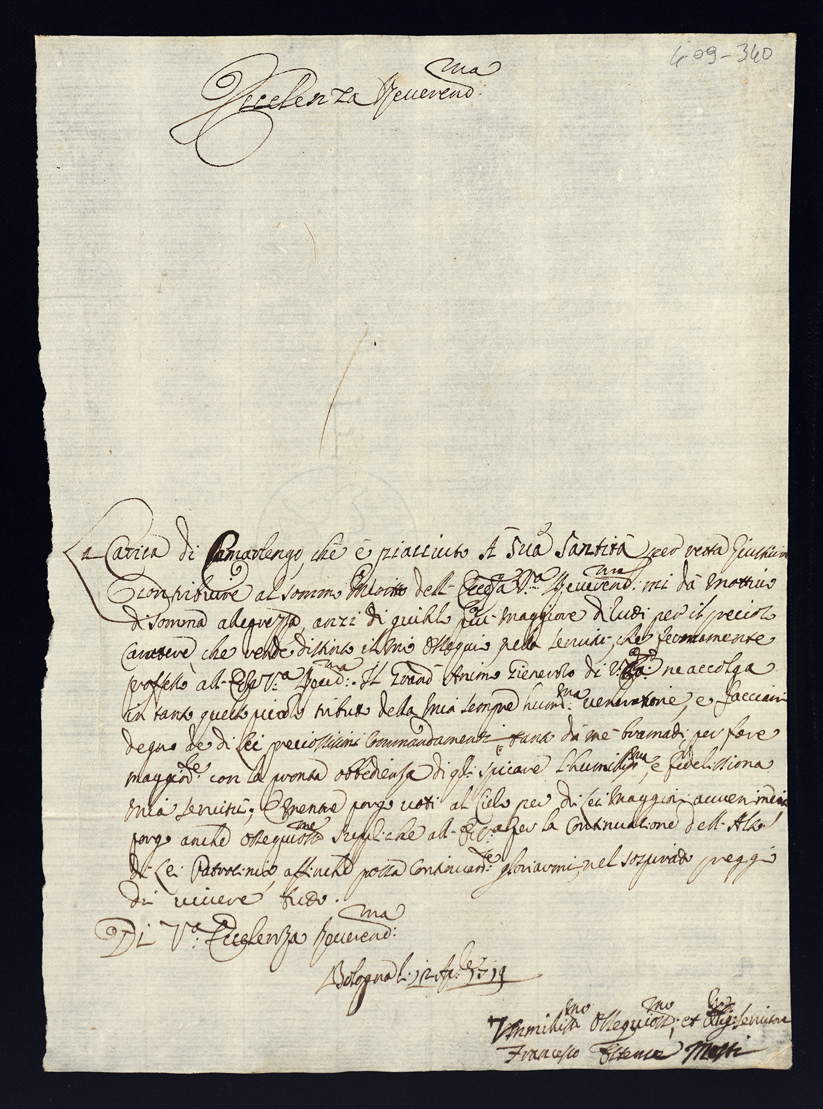 409-340
Eccelenza Reverend:ma
La Carica di Camarlengo, che è piacciuto A Sua Santità per retta
Contribuire al sommo Merito dell Ecc:za V:a Reverend:ma mi dà mottivo
di somma allegrezza, anzi di giubilo più maggiore di tutti per il
Carattere che rende distinto il mio Ossequio nella servitù, che fermamente
professo all Ecc:za V:a Reverend:ma. Il Grand Animo di ne accolga
in tanto questo picciolo tributo della mia sempre humil:ma veneratione, e facciami
degno de di Lei preciosissimi Commandamenti tanto da me bramati per fare
maggior:te con la pronta obbedienza di spicare l'humiliss:ma, e fedelissima
mia servitù, e mentre porgo voti al Cielo per di Lei maggior:
porgo anche Ossequios:me suppliche all per la Continuatione dell Alto
di Lei Patrocinio, affinché possa Continuam:te gloriarmi nel
di vivere tutto.
Di V:a Eccelenza Reverend:ma
Bologna li 12 1719
Humiliss:mo Ossequios:mo, et Oblig: servitore
Francesco Estense Mosti